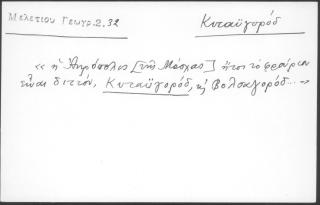 Μελετίου Γεωγρ. 2, 32
Κυταϋγορόδ
« ἡ Ἀκρόπολις [τῆς Μόσχας] ἤτοι τὸ φρούριον
εἶναι διττόν, Κυταϋγορόδ, κ Βολσκγορόδ... »